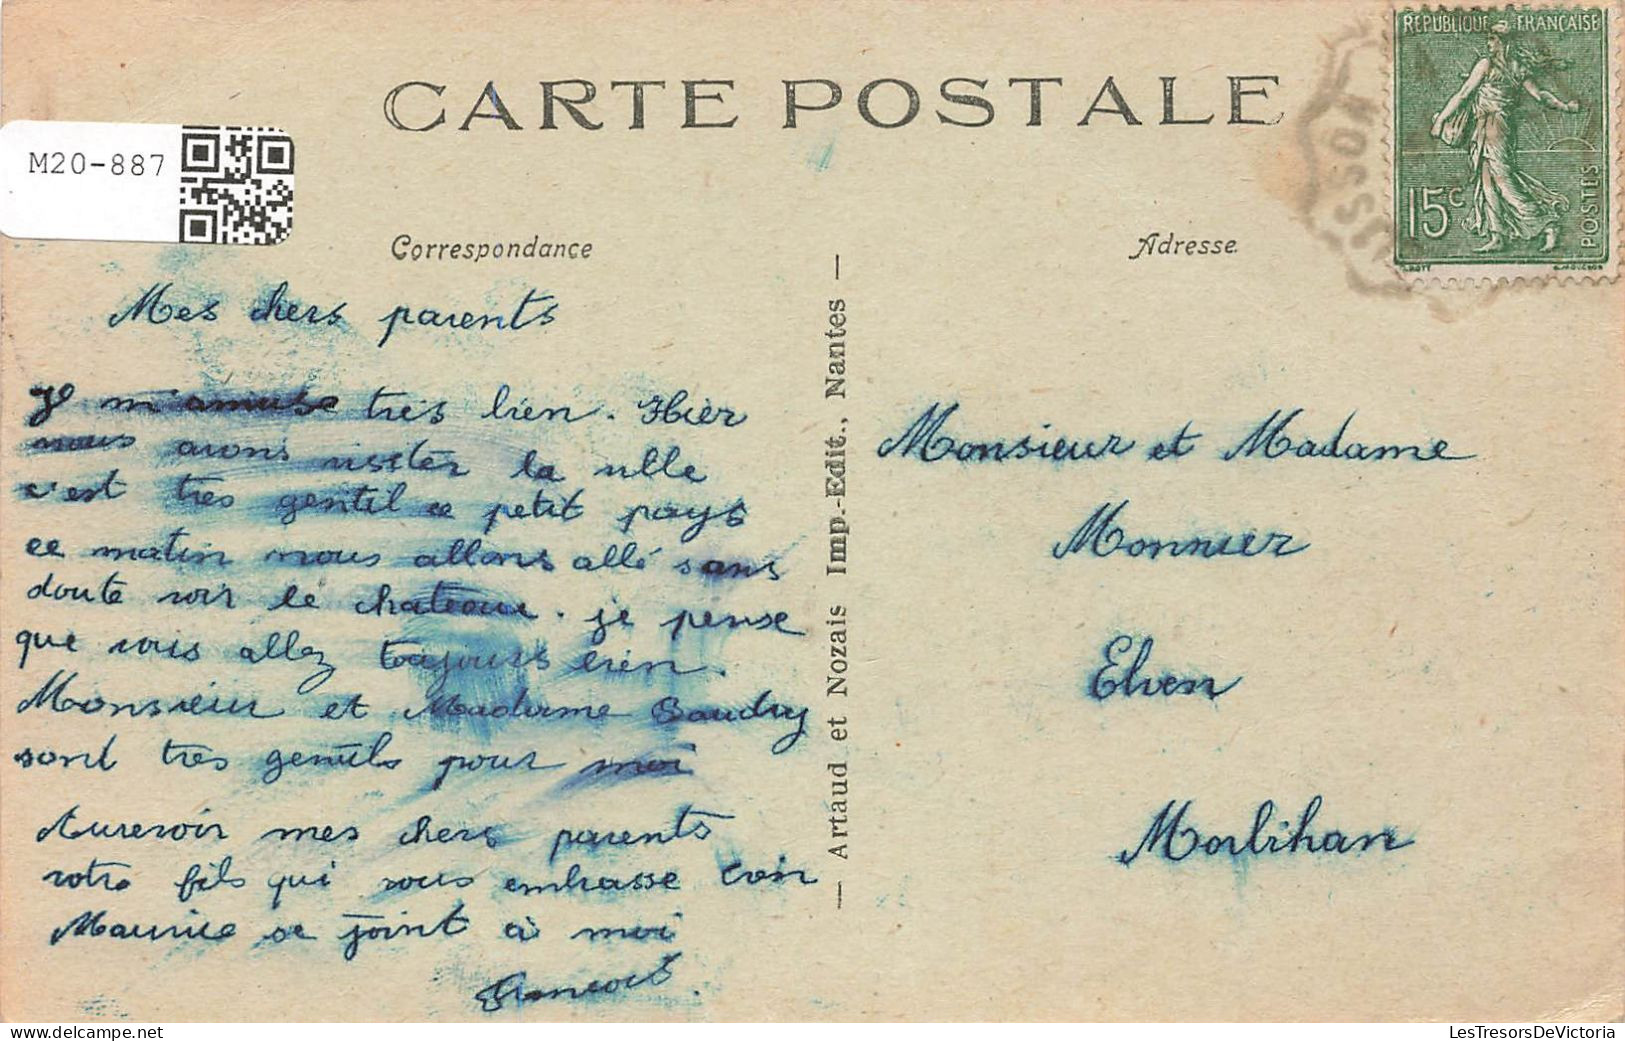 CARTE POSTALE
M20-887
Correspondance
Mes chers parents
Je m'amuse très bien. Hier
nous avons visiter la ville
c'est très gentil ce petit pays
ce matin nous allons allé sans
doute voir le chateau. je pense
que vous allez toujours bien.
Monsieur et Madame Baudry
sont très gentils pour moi
Aurevoir mes chers parents
votre fils qui vous embrasse bien
Maurice se joint à moi
François.
— Artaud et Nozais Imp.-Edit., Nantes —
Adresse
REPUBLIQUE FRANÇAISE
15c
POSTES
Monsieur et Madame
Monnier
Elven
Morbihan
LesTresorsDeVictoria